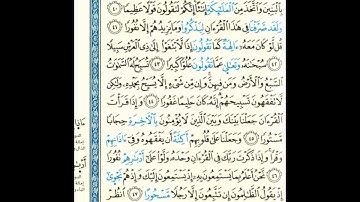 بِالْبَنِينَ وَاتَّخَذَ مِنَ الْمَلَٰئِكَةِ إِنَٰثًا إِنَّكُمْ لَتَقُولُونَ قَوْلًا عَظِيمًا ٤٠
وَلَقَدْ صَرَّفْنَا فِي هَٰذَا الْقُرْءَانِ لِيَذَّكَّرُوا وَمَا يَزِيدُهُمْ إِلَّا نُفُورًا ٤١
قُل لَّوْ كَانَ مَعَهُ ءَالِهَةٌ كَمَا تَقُولُونَ إِذًا لَّابْتَغَوْا إِلَىٰ ذِي الْعَرْشِ سَبِيلًا
٤٢ سُبْحَٰنَهُ وَتَعَٰلَىٰ عَمَّا يَقُولُونَ عُلُوًّا كَبِيرًا ٤٣ تُسَبِّحُ لَهُ السَّمَٰوَٰتُ
السَّبْعُ وَالْأَرْضُ وَمَن فِيهِنَّ وَإِن مِّن شَيْءٍ إِلَّا يُسَبِّحُ بِحَمْدِهِ وَلَٰكِن
لَّا تَفْقَهُونَ تَسْبِيحَهُمْ إِنَّهُ كَانَ حَلِيمًا غَفُورًا ٤٤ وَإِذَا قَرَأْتَ
الْقُرْءَانَ جَعَلْنَا بَيْنَكَ وَبَيْنَ الَّذِينَ لَا يُؤْمِنُونَ بِالْءَاخِرَةِ حِجَابًا
مَّسْتُورًا ٤٥ وَجَعَلْنَا عَلَىٰ قُلُوبِهِمْ أَكِنَّةً أَن يَفْقَهُوهُ وَفِي ءَاذَانِهِمْ
وَقْرًا وَإِذَا ذَكَرْتَ رَبَّكَ فِي الْقُرْءَانِ وَحْدَهُ وَلَّوْا عَلَىٰ أَدْبَٰرِهِمْ نُفُورًا
٤٦ نَّحْنُ أَعْلَمُ بِمَا يَسْتَمِعُونَ بِهِ إِذْ يَسْتَمِعُونَ إِلَيْكَ وَإِذْ هُمْ نَجْوَىٰ
إِذْ يَقُولُ الظَّٰلِمُونَ إِن تَتَّبِعُونَ إِلَّا رَجُلًا مَّسْحُورًا ٤٧ انظُرْ